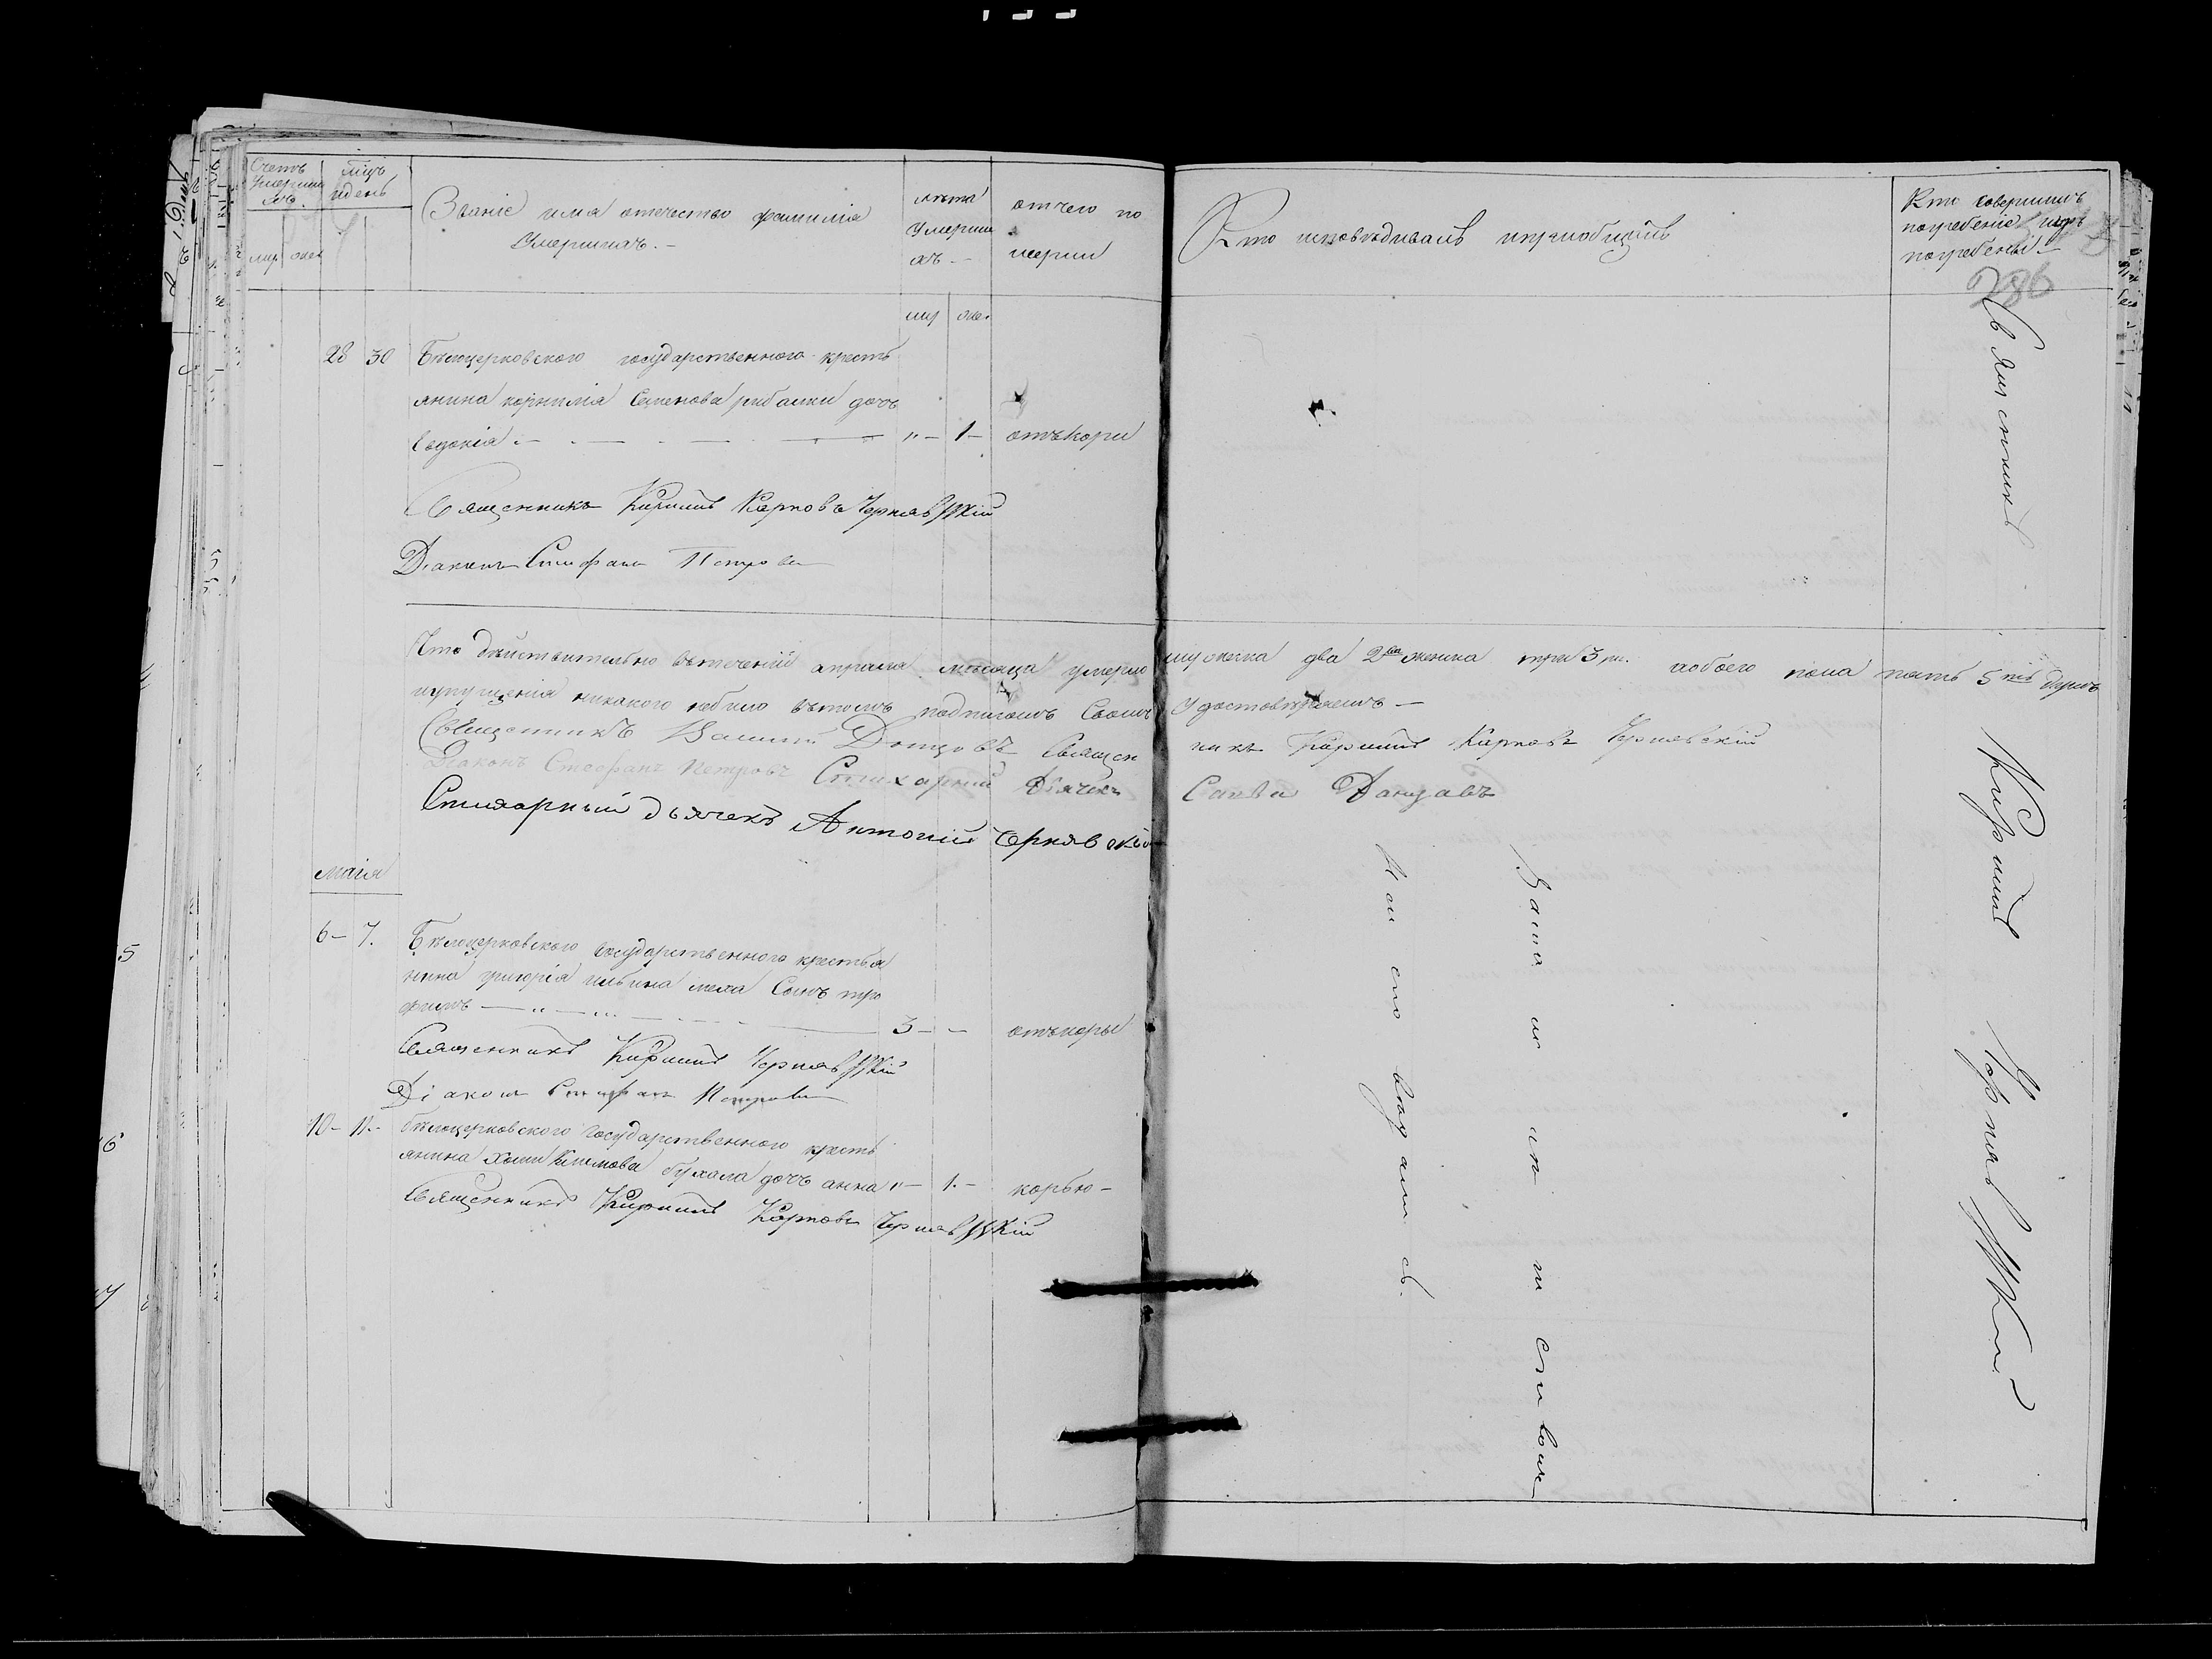 Счетъ умерши мъ.
мцъ идень
муж женс
Званіе имя отечество фамилія
умершихъ. —
лѣта
умерши
хъ —
отчего по
мерли
Кто исповѣдивалъ ипріобщалъ
Кто совершилъ
погребеніе игдѣ
погребены —
286
муж женс
28 30 Бѣлоцерковского государственного кресть
янина корнилія Семенова рибалки дочь
Евдокія — „ — 1 — отъкори
Священникъ Кирилъ Карповъ Чернявскій
Діаконъ Стефанъ Петровъ
Что дѣйствительно втеченіи апреля мѣсяца умерло мужеска два 2 женска три 3 аобоего пола пять 5 душъ
ипущенія никакого небило втомъ подписомъ Своимъ Удостовѣряемъ —
Священникъ Василій Донцовъ Священникъ Кирилъ Карповъ Чернявскій
Діаконъ Стефанъ Петровъ Стихарній Дьячекъ Савва Донцовъ
Стихарный дьячекъ Антоній Чернявскій
маія
6 — 7. Бѣлоцерковского государственного крестья
нина григорія ильина Сынъ тро
фимъ — 3 — — отъкоры
Священникъ Кирилъ Чернявскій
Діаконъ Стефанъ Петровъ
10 — 11 — бѣлоцерковского государственного кресть
янина бухала дочъ анна „ — 1 — корью —
Священникъ Кирилъ Карповъ Чернявскій
Священникъ Кирилъ Чернявскій